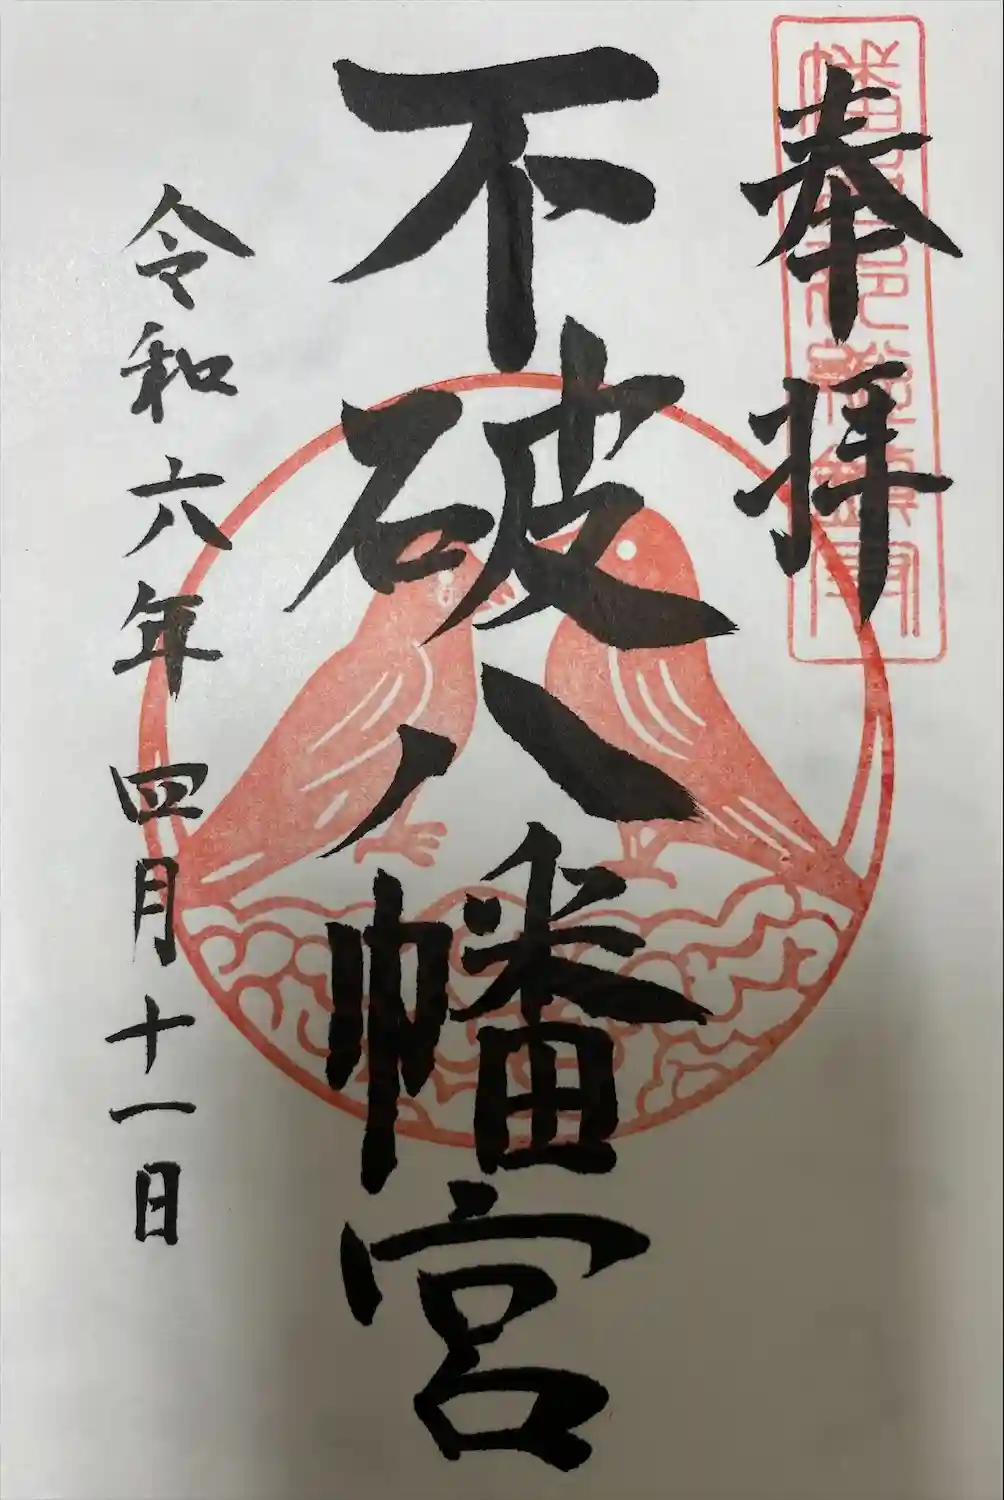 奉拝
不破八幡宮
令和六年四月十一日